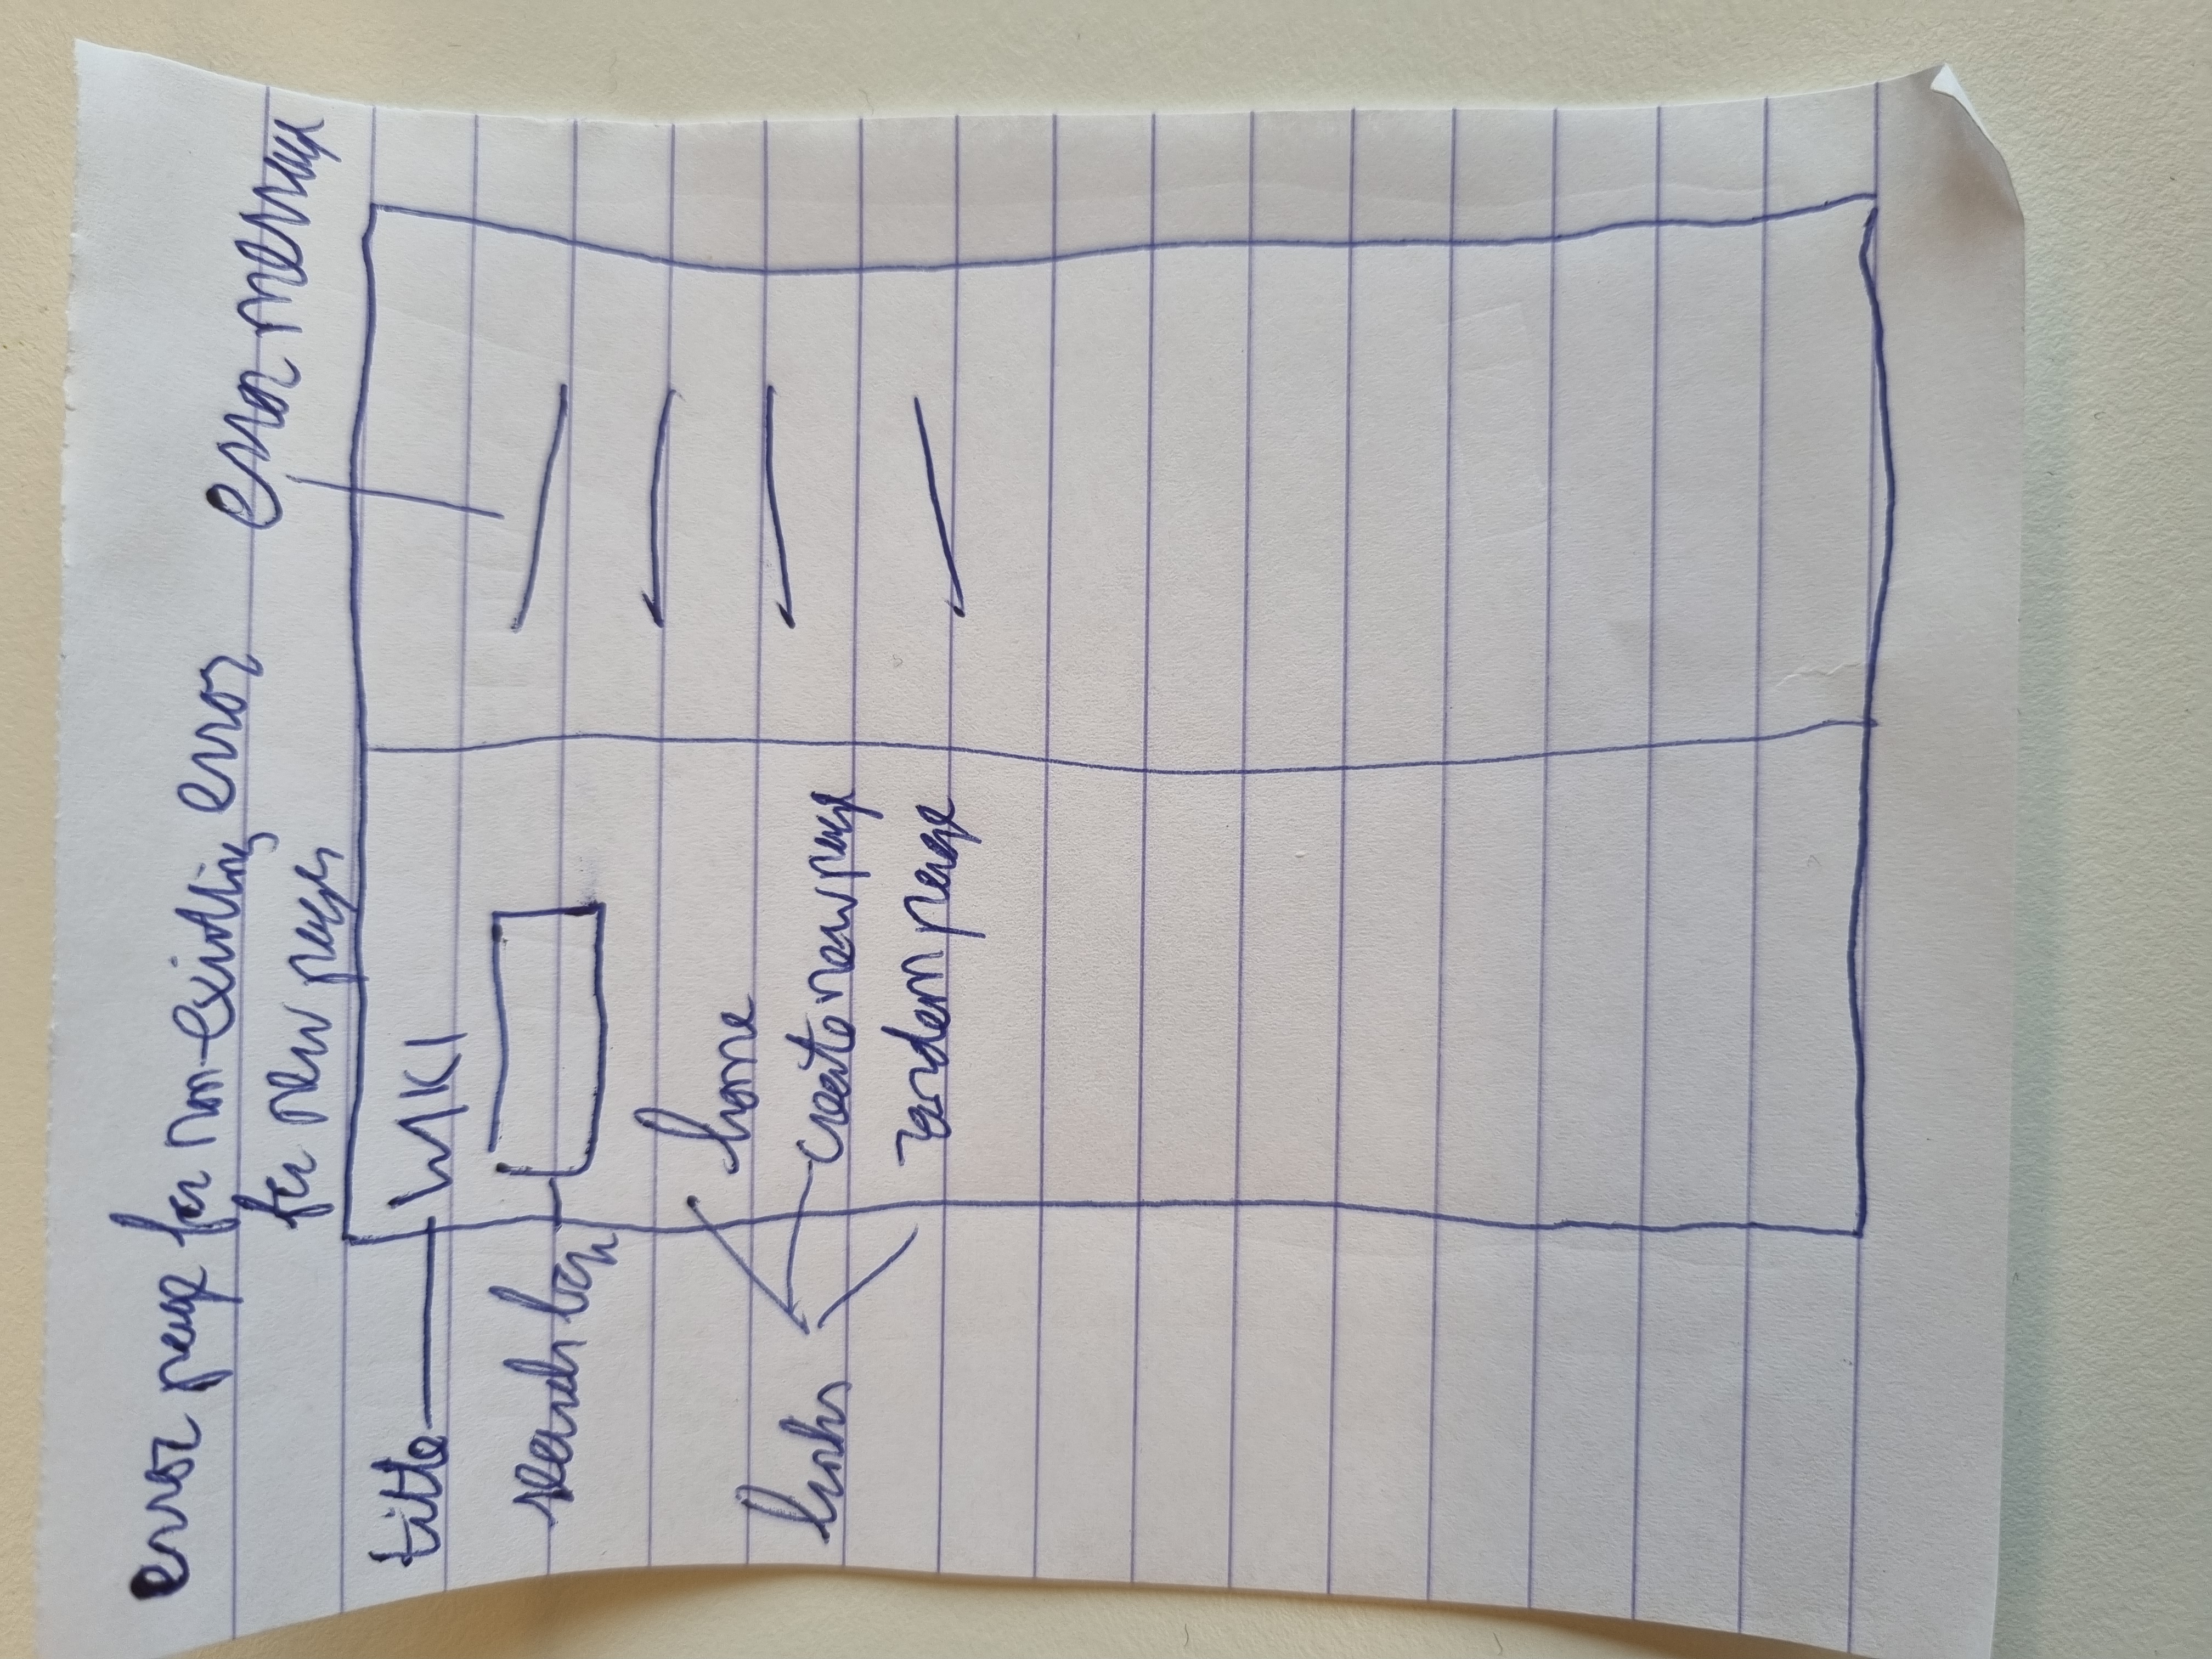 error page for non-existing error
for new pages
error message
title
WIKI
search bar
home
links
create new page
random page